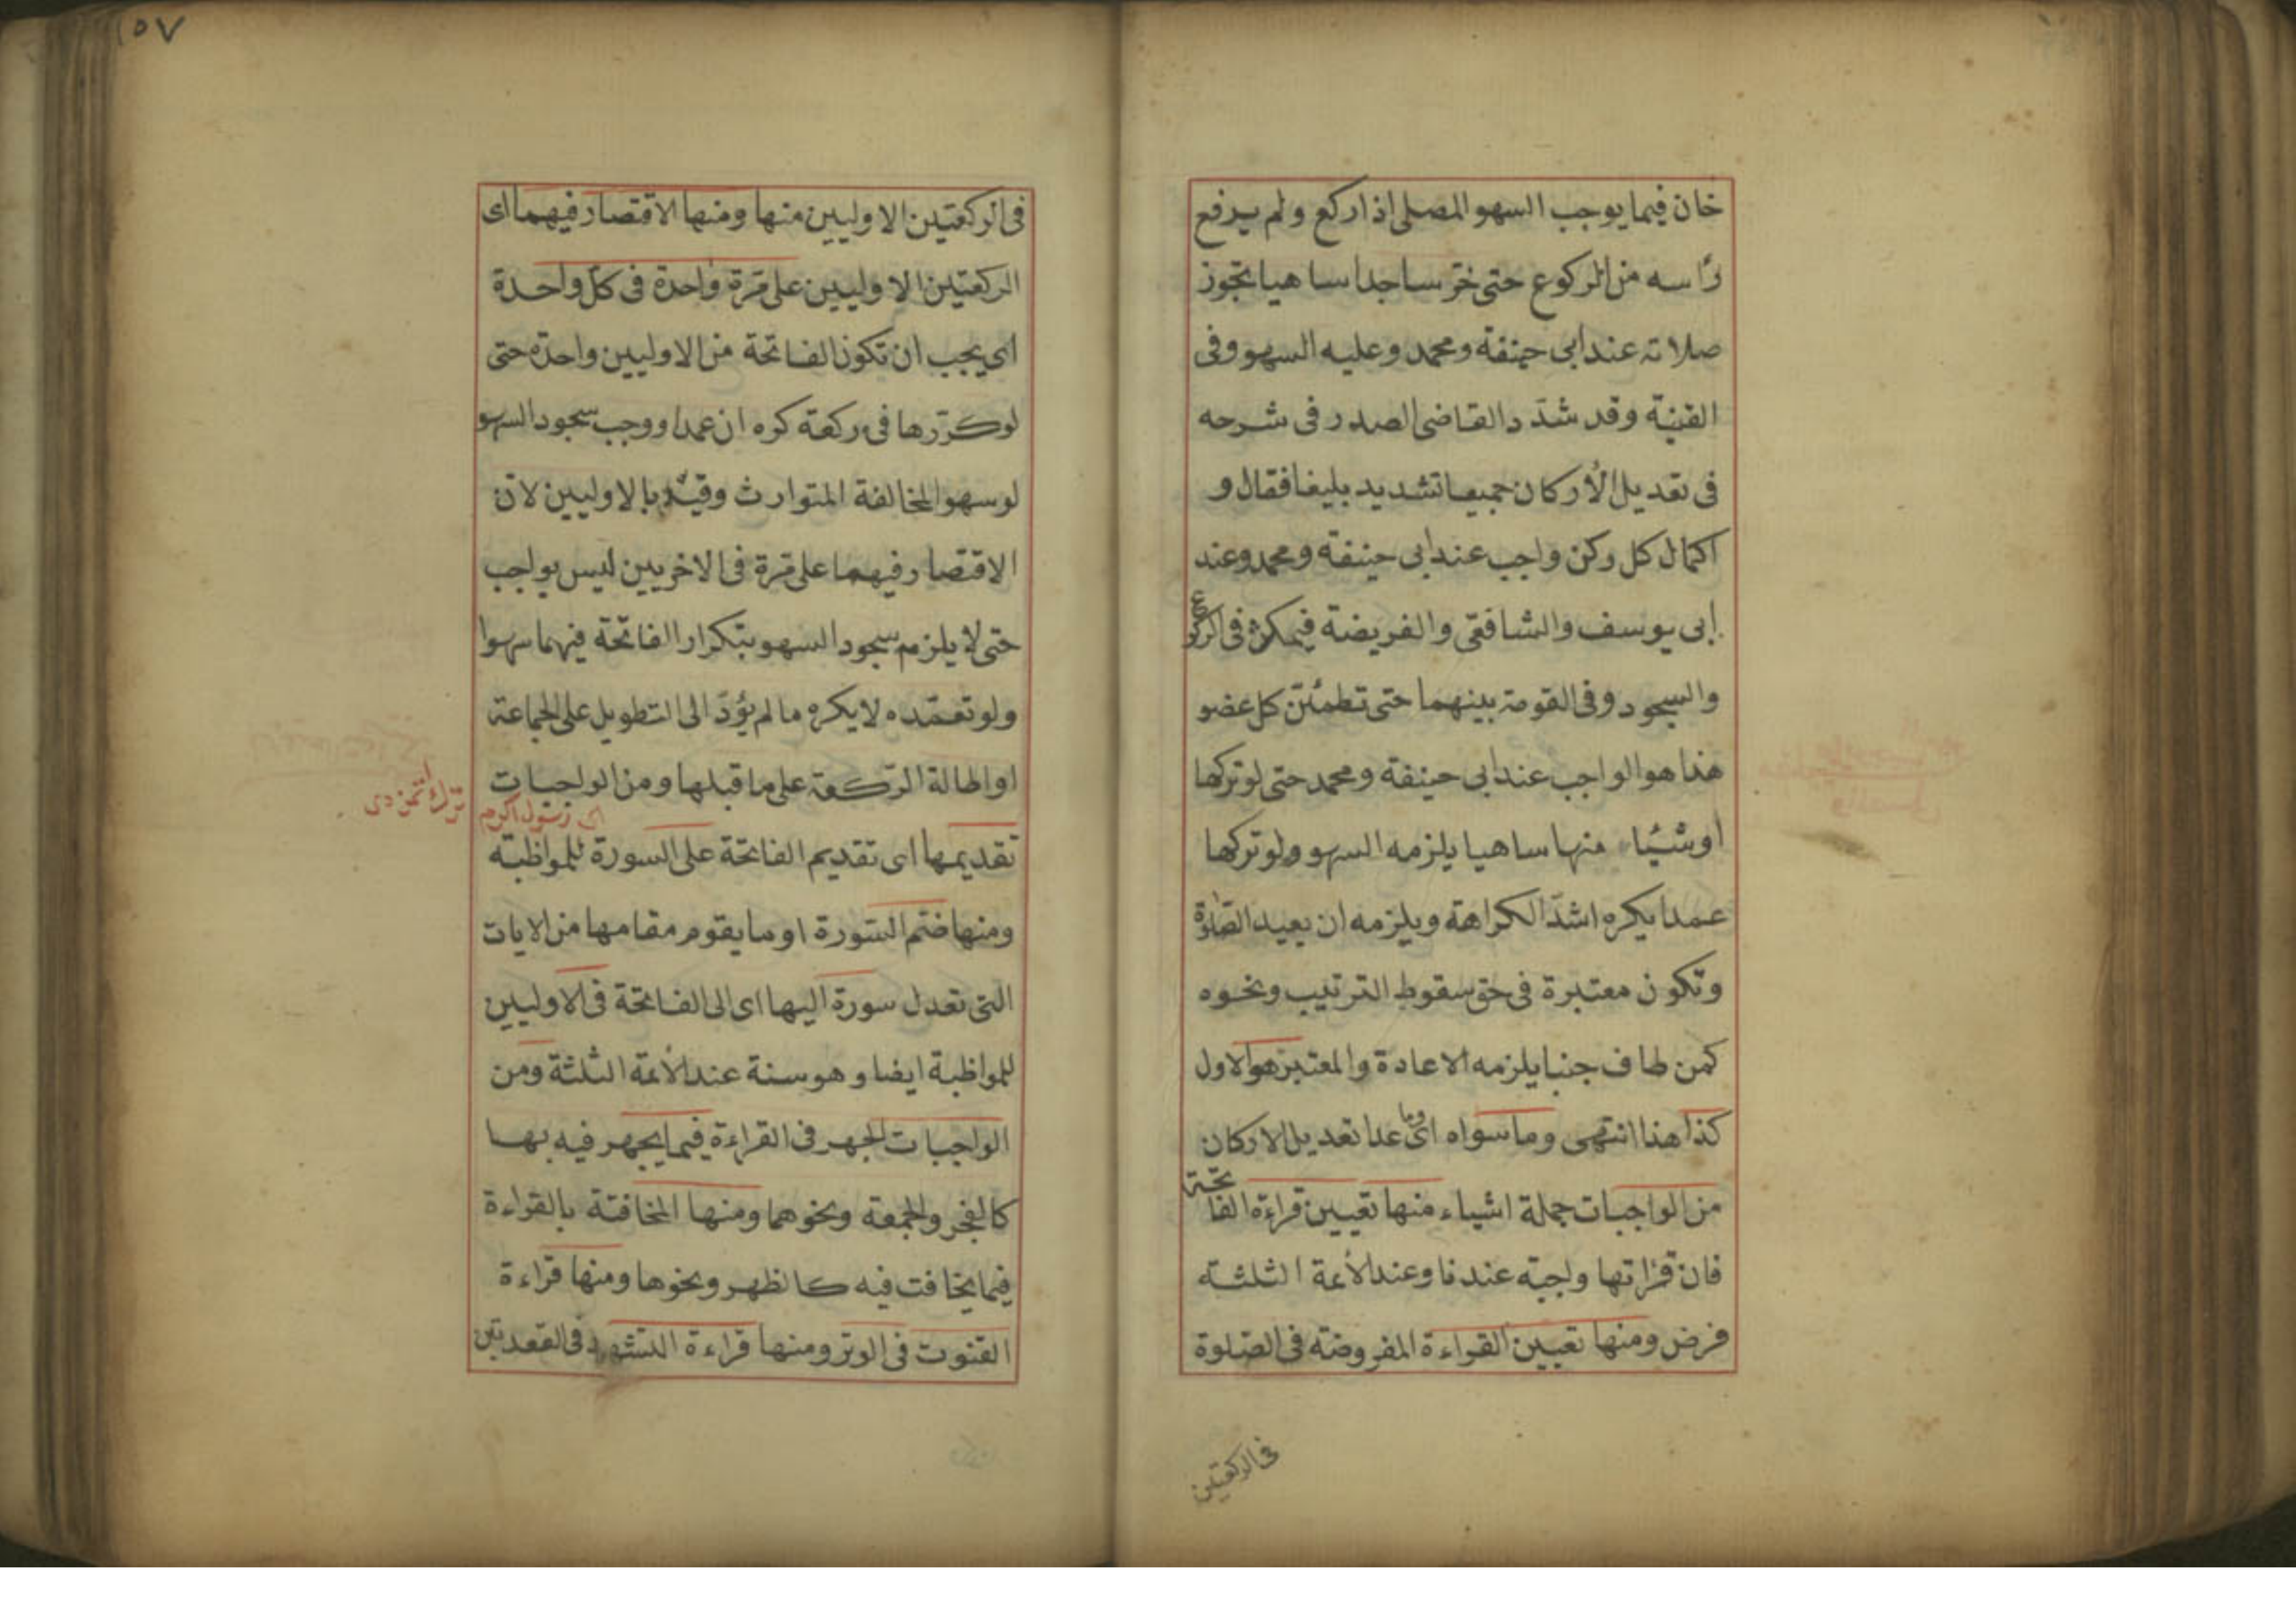 خان فيما يوجب السهو المصلى اذا ركع ولم يرفع
رأسه من الركوع حتى خرّ ساجدا ساهيا تجوز
صلاته عند ابى حنيفة ومحمد وعليه السهو وفى
القنية وقد شدّد القاضى الصدر فى شرحه
فى تعديل الأركان جميعا تشديد بليغا فقال و
اكمال كل ركن واجب عند ابى حنيفة ومحمد وعند
ابى يوسف والشافعى والفريضة فيمكث فى الركوع
والسجود وفى القومة بينهما حتى تطمئن كل عضو
هذا هو الواجب عند ابى حنيفة ومحمد حتى لو تركها
او شيئا منها ساهيا يلزمه السهو ولو تركها
عمدا يكره اشدّ الكراهة ويلزمه ان يعيد الصلوة
وتكون معتبرة فى حق سقوط الترتيب ونحوه
كمن طاف جنبا يلزمه الاعادة والمعتبر هو الاول
كذا هذا انتهى وما سواه اى وما عدا تعديل الاركان
من الواجبات جملة اشياء منها تعيين قراءة الفاتحة
فان قراتها واجبة عندنا وعند الأئمة الثلثة
فرض ومنها تعيين القراءة المفروضة فى الصلوة
فى الركعتين
١٥٧
فى الركعتين الاوليين منها ومنها الاقتصار فيهما اى
الركعتين الاوليين على مرة واحدة فى كل واحدة
اى يجب ان تكون الفاتحة من الاوليين واحدة حتى
لو كرّرها فى ركعة كره ان عمدا ووجب سجود السهو
لو سهوا لمخالفة المتوارث وقيّد بالاوليين لان
الاقتصار فيهما على مرة فى الاخريين ليس بواجب
حتى لا يلزم سجود السهو بتكرار الفاتحة فيهما سهوا
ولو تعمّده لا يكره ما لم يؤدّ الى التطويل على الجماعة
او اطالة الركعة على ما قبلها ومن الواجبات
اى رسول اكرم ترك اتمزدى
تقديمها اى تقديم الفاتحة على السورة للمواظبة
ومنها ضتم السورة او ما يقوم مقامها من الايات
التى تعدل سورة اليها اى الى الفاتحة فى الاوليين
للمواظبة ايضا وهو سنة عند الأئمة الثلثة ومن
الواجبات الجهر فى القراءة فيما يجهر فيه بها
كالفجر والجمعة ونحوهما ومنها المخافتة بالقراءة
فيما يخافت فيه كالظهر ونحوها ومنها قراءة
القنوت فى الوتر ومنها قراءة التشهد فى القعدتين